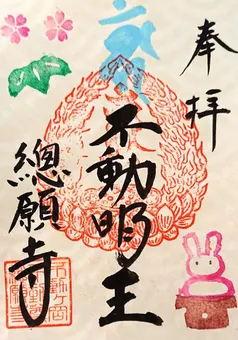 奉拝
不動明王
總願寺